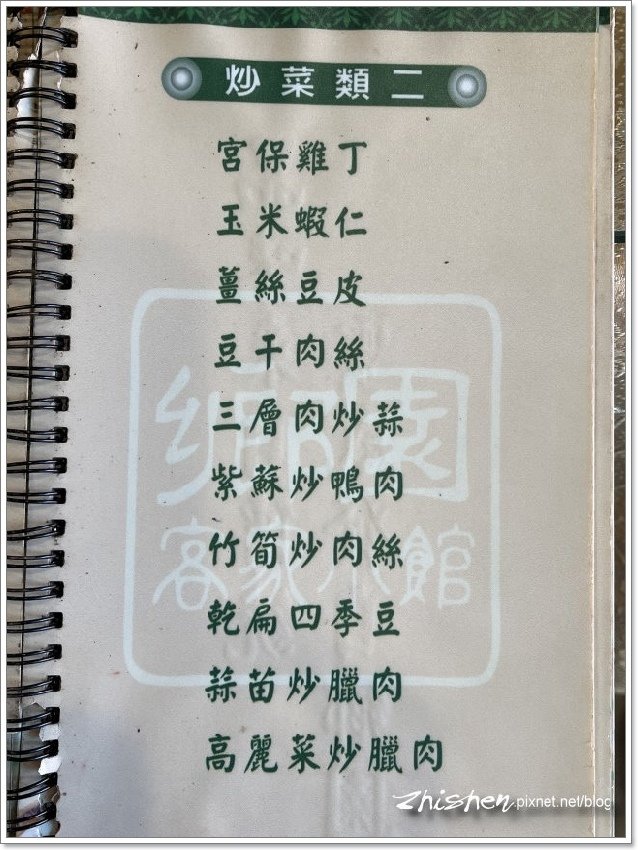 炒菜類二
宮保雞丁
玉米蝦仁
薑絲豆皮
豆干肉絲
三層肉炒蒜
紫蘇炒鴨肉
竹筍炒肉絲
乾扁四季豆
蒜苗炒臘肉
高麗菜炒臘肉
鄉園
客家小館
zhishen.pixnet.net/blog